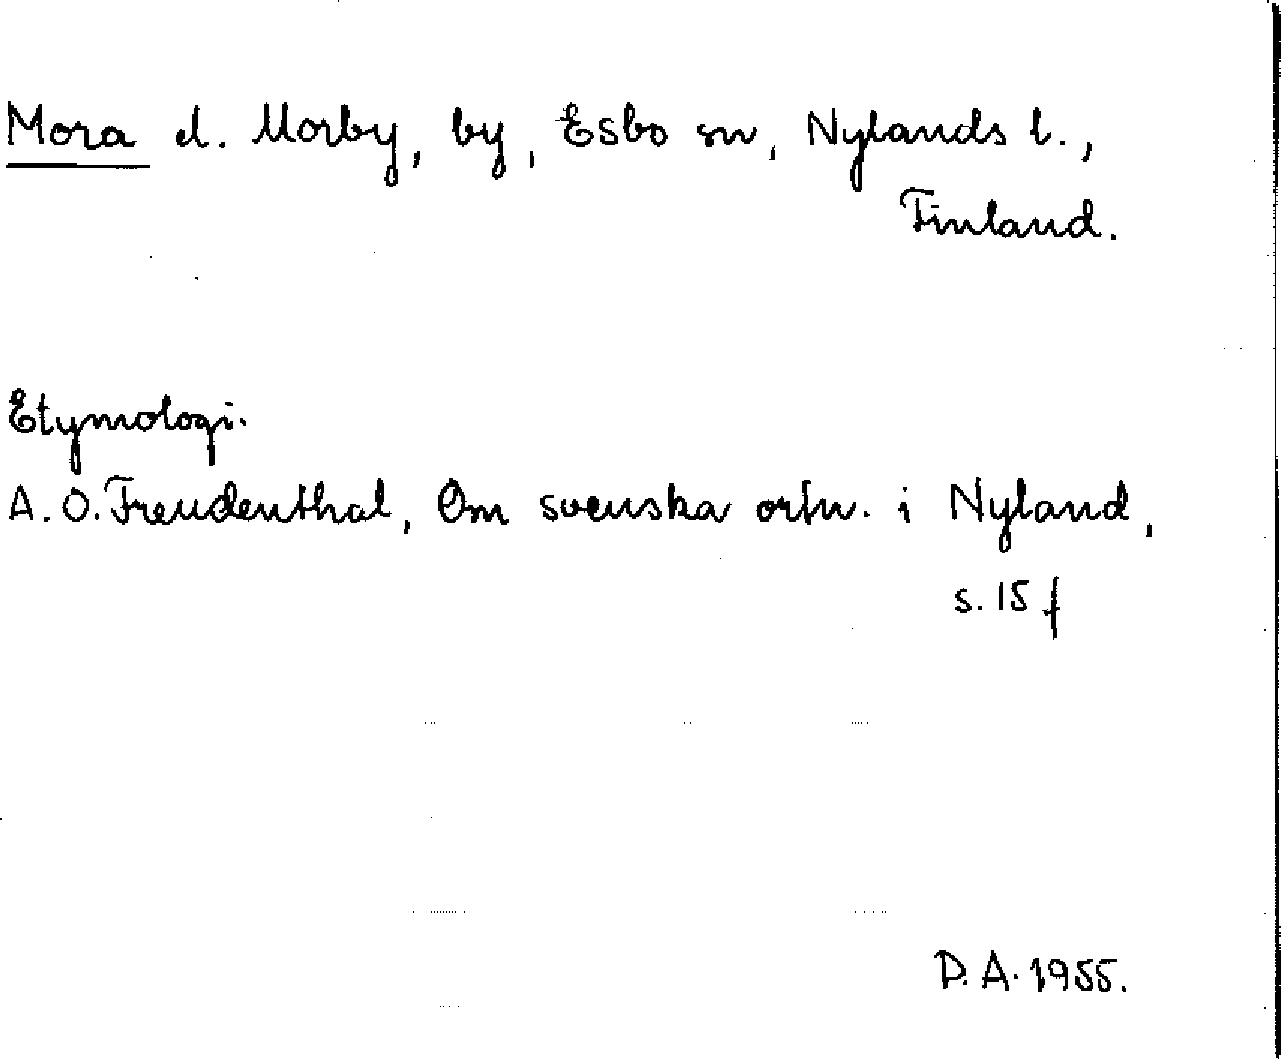 Mora el. Morby, by, Esbo sn, Nylands l.,
Finland.
Etymologi.
A.O. Freudenthal, Om svenska ortn. i Nyland,
s. 15 f
D.A. 1955.